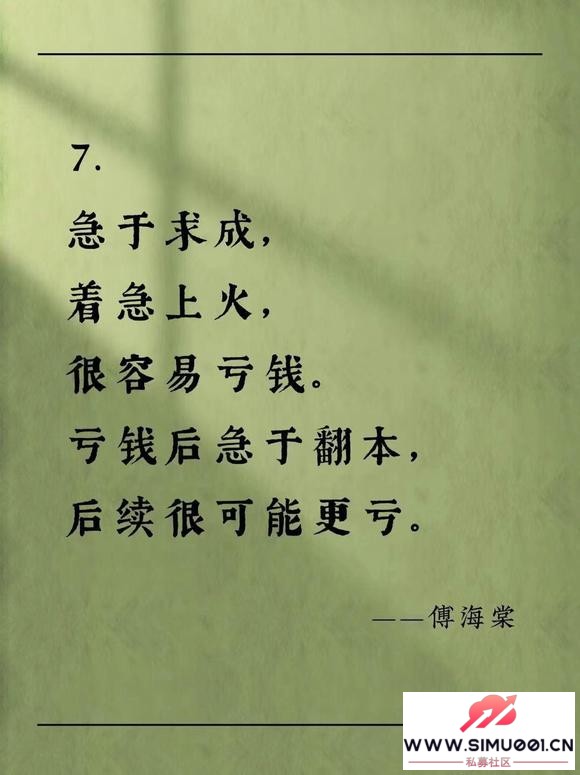 7.
急于求成，
着急上火，
很容易亏钱。
亏钱后急于翻本，
后续很可能更亏。
——傅海棠
WWW.SIMU001.CN
私募社区